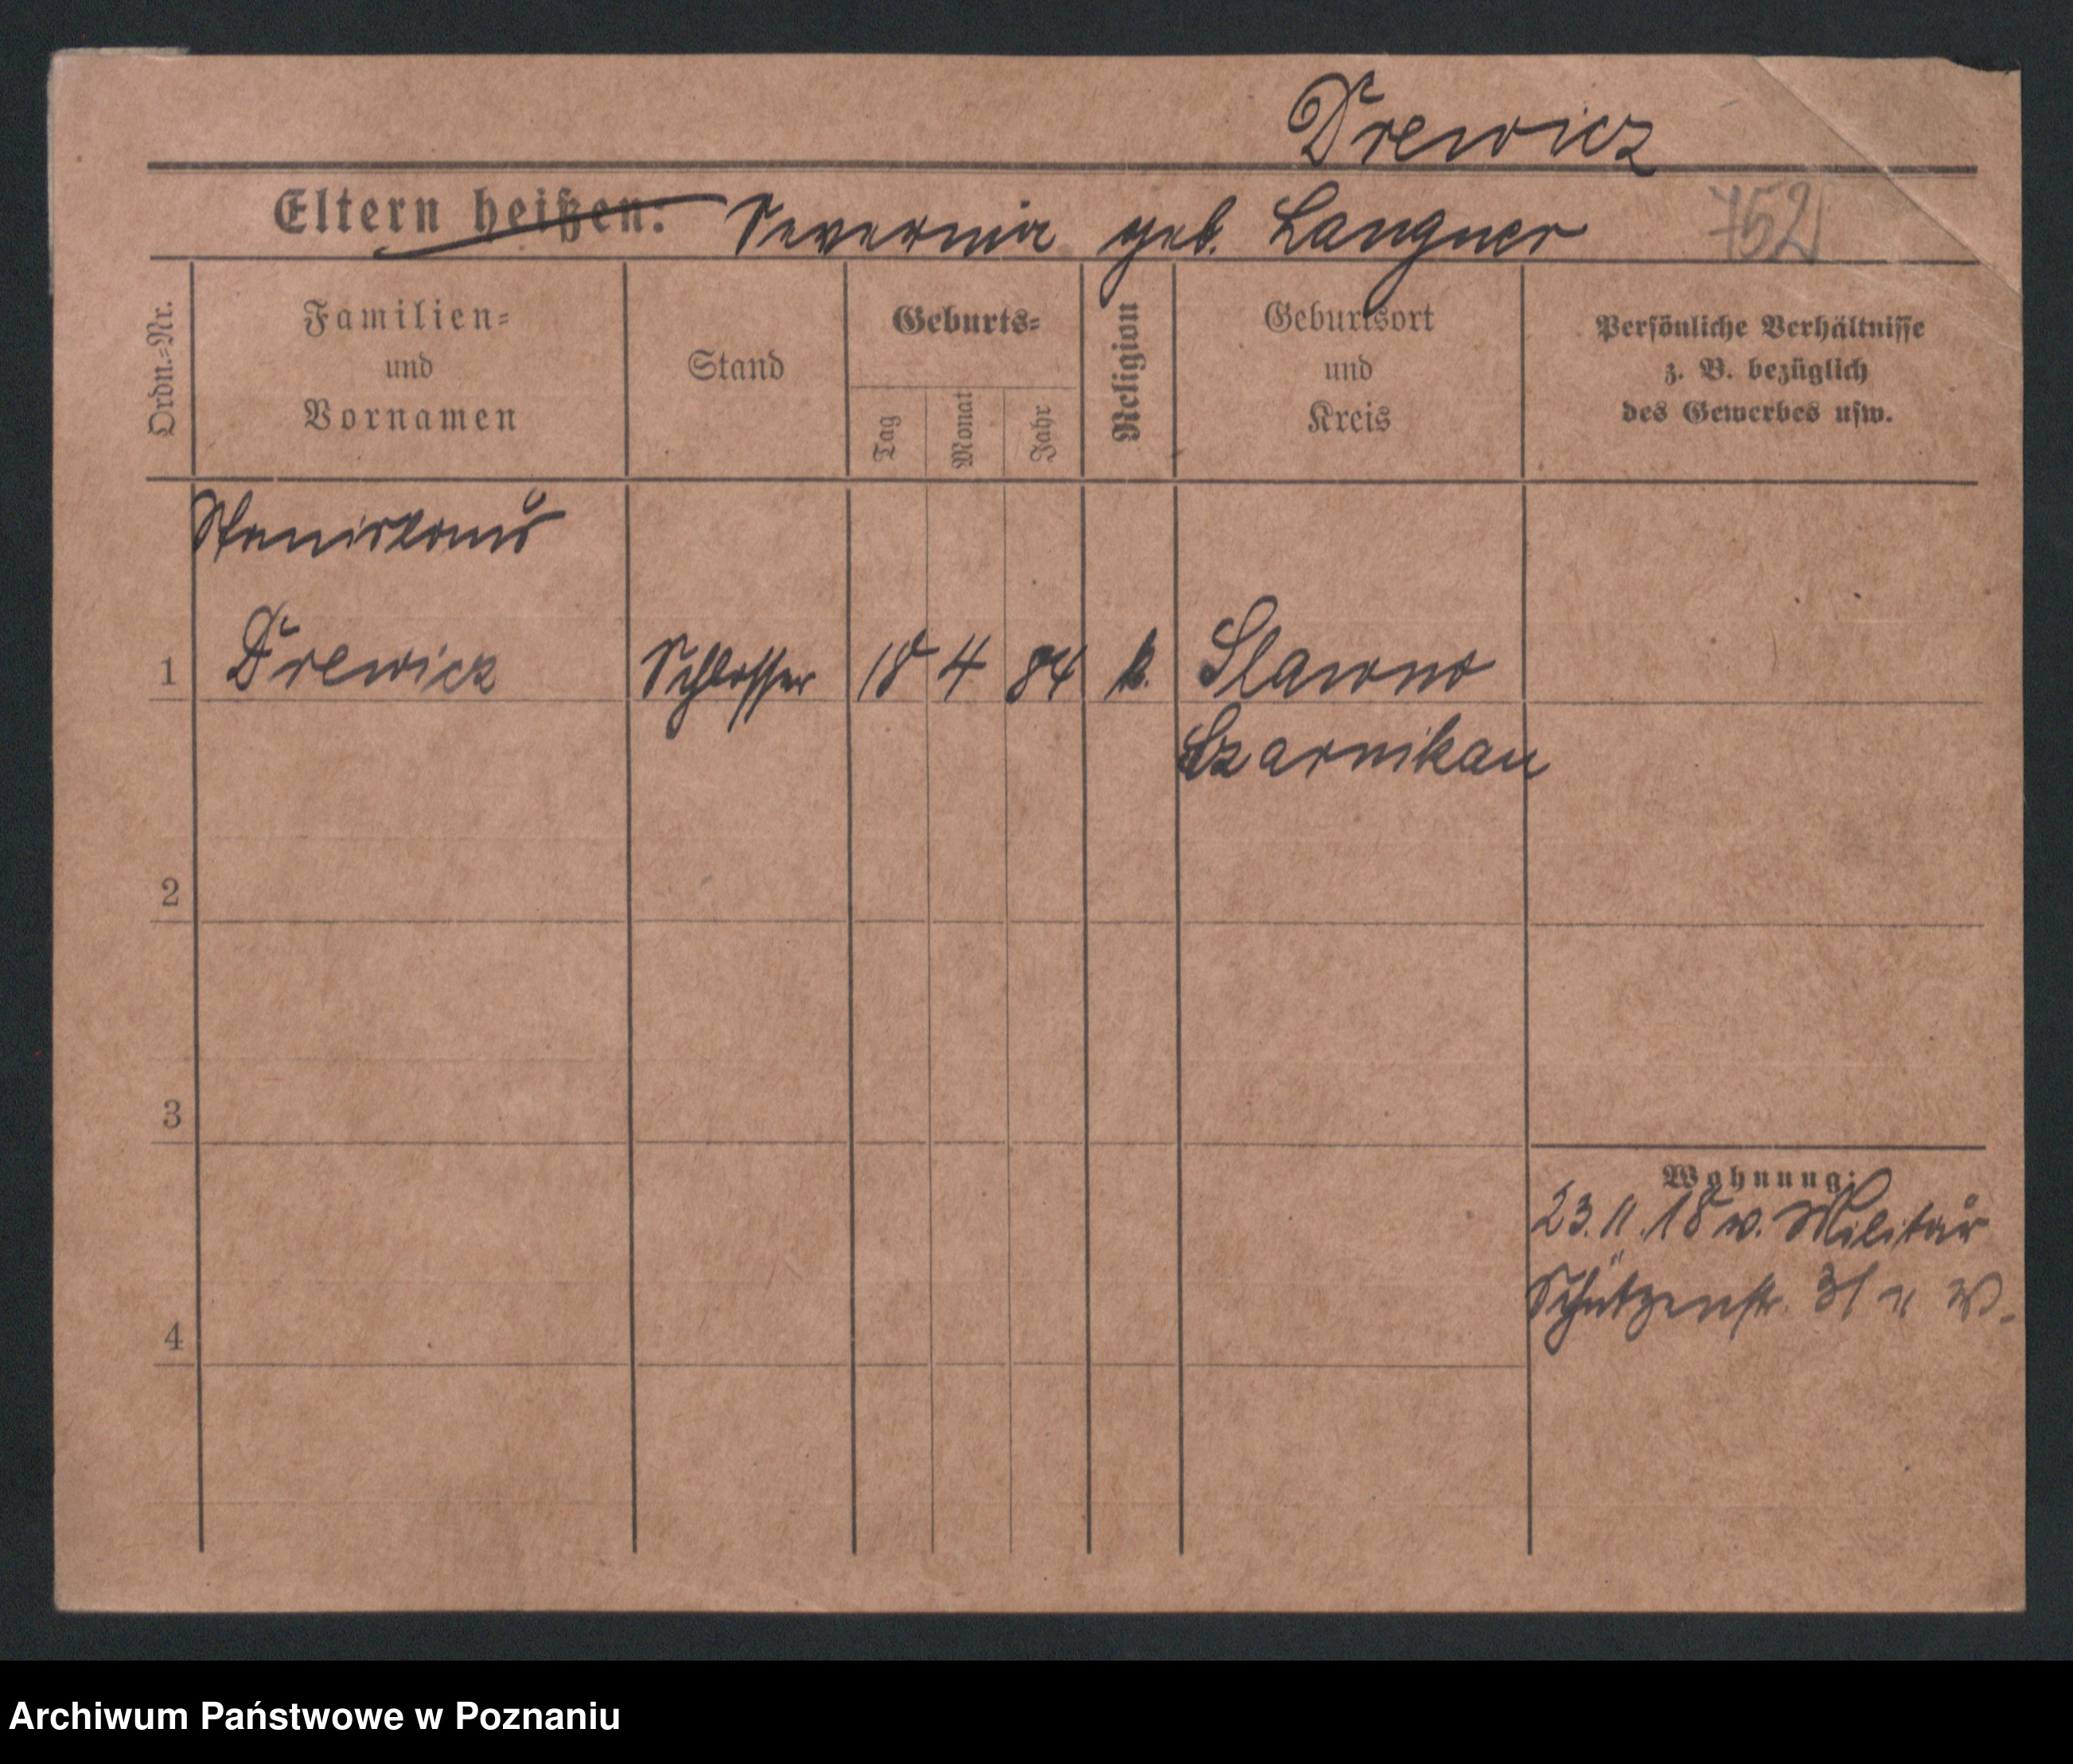 Drewicz
Eltern heißen: Severina geb. Langner 752
Ordn.=Nr.
Familien=
und
Vornamen
Stand
Geburts=
Tag
Monat
Jahr
Religion
Geburtsort
und
Kreis
Persönliche Verhältnisse
z. B. bezüglich
des Gewerbes usw.
Stanislaus
1 Drewicz Schlosser 18 4 84 k. Slawno
Czarnikau
2
3
Wohnung:
23.11.18 v. Militär
Schützenstr. 31
4
Archiwum Państwowe w Poznaniu